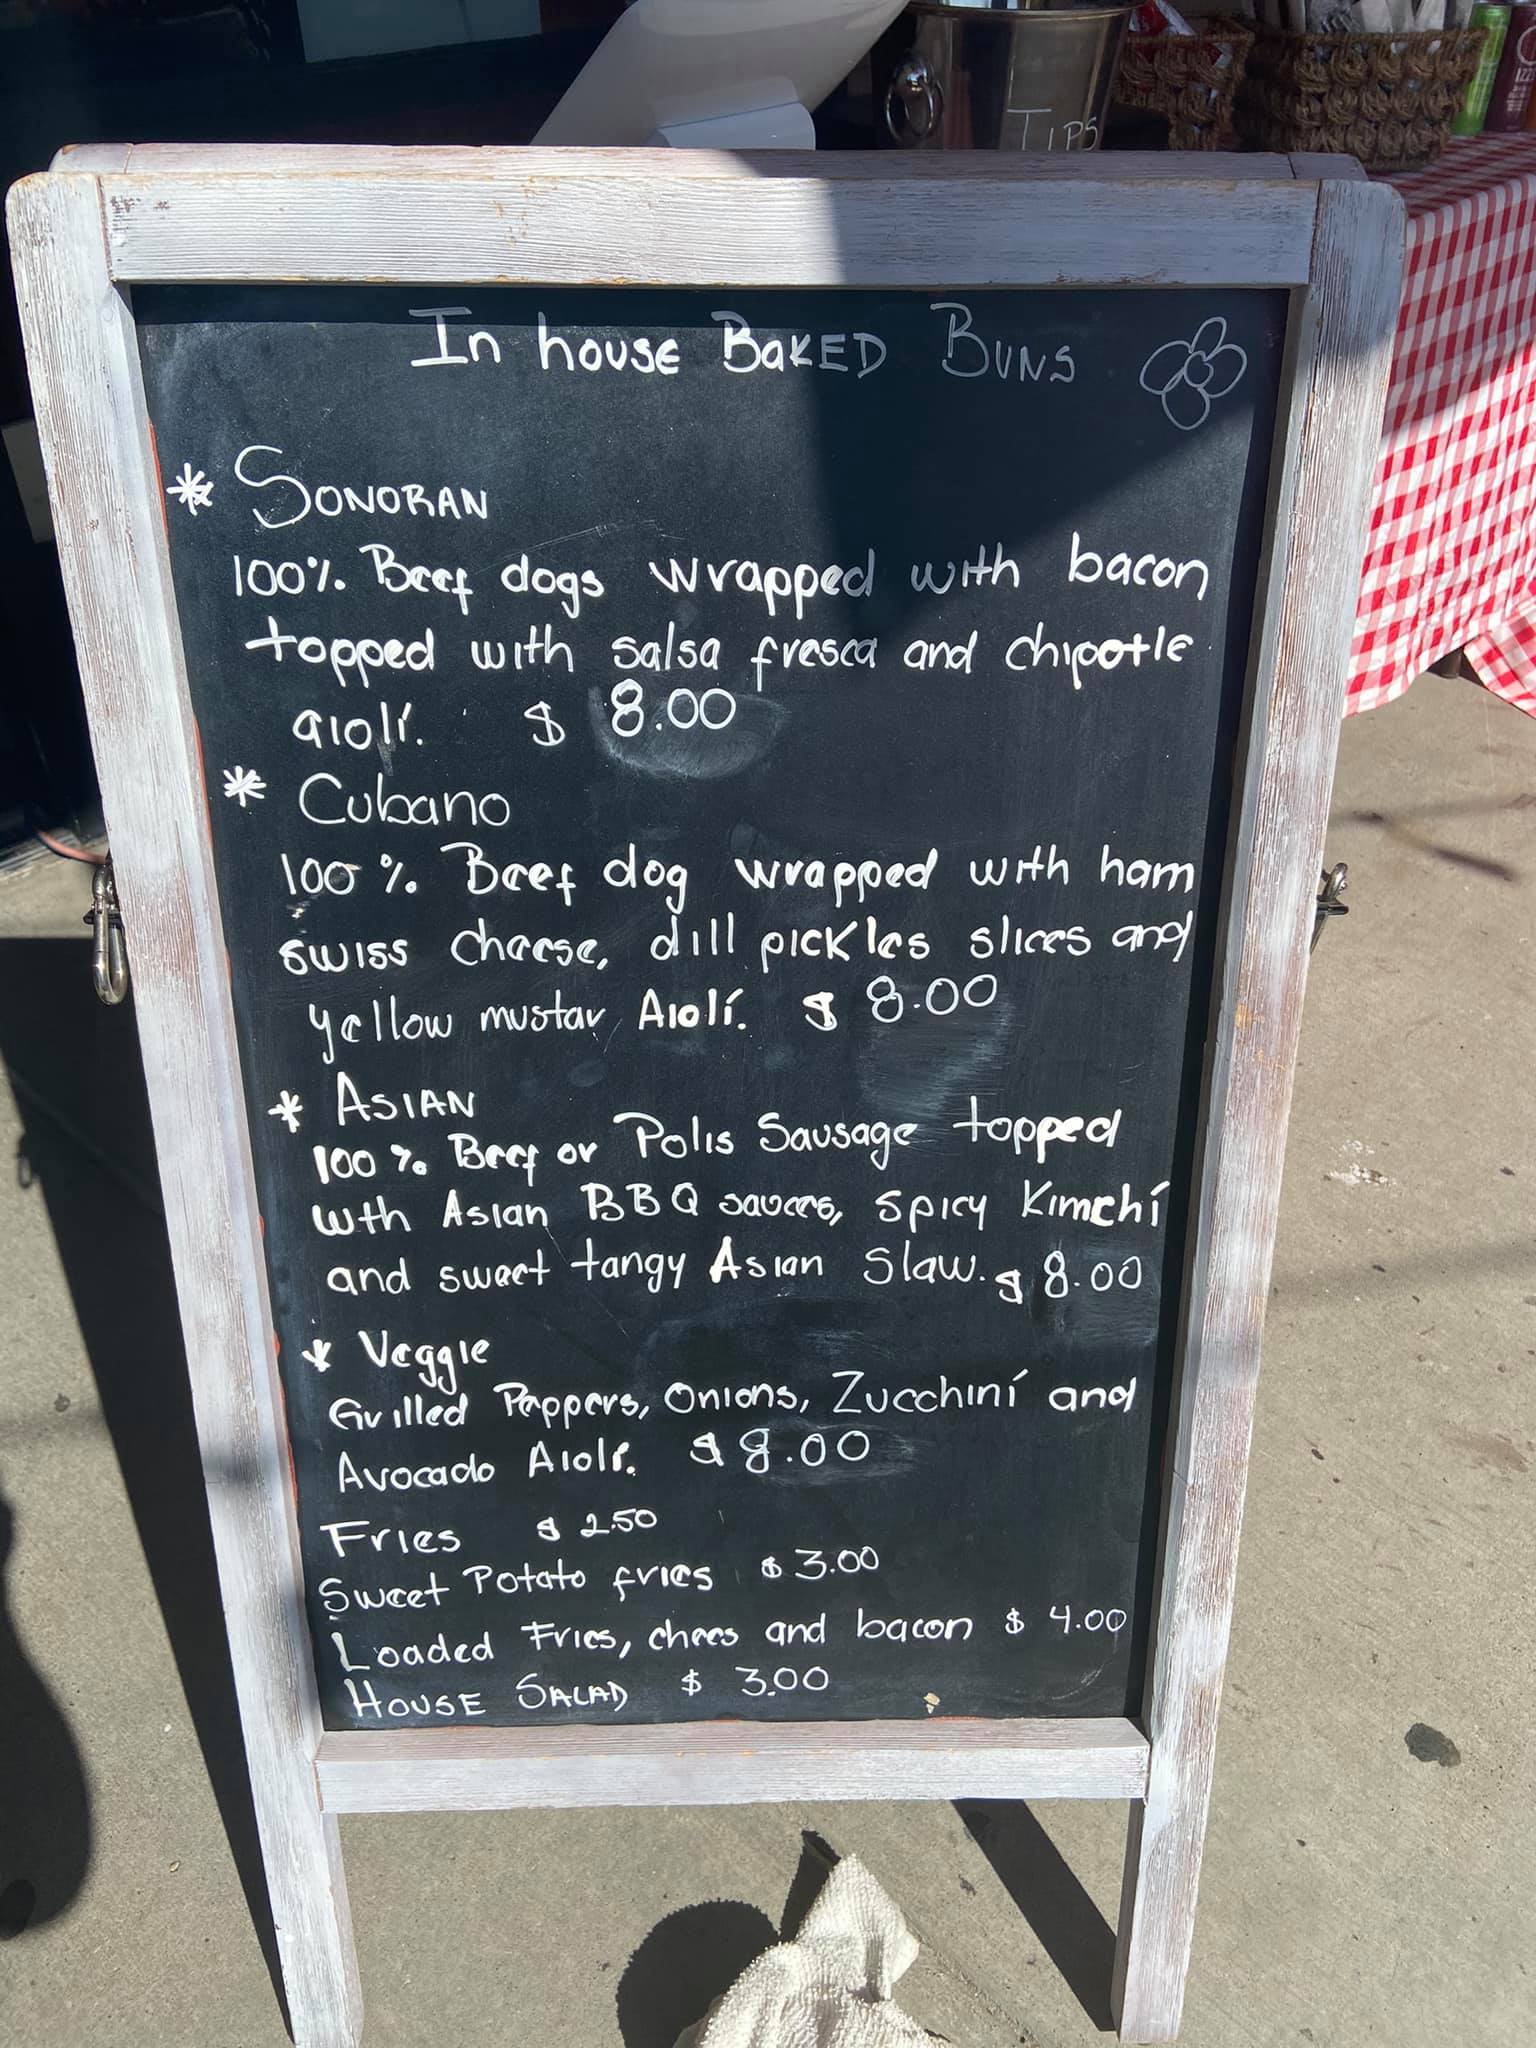 TIPS
IZZ
In house BAKED BUNS
* SONORAN
100% Beef dogs wrapped with bacon
topped with salsa fresca and chipotle
aiolí. $ 8.00
* Cubano
100 % Beef dog wrapped with ham
swiss cheese, dill pickles slices and
yellow mustar Aiolí. $ 8.00
* ASIAN
100 % Beef or Polis Sausage topped
wth Asian BBQ sauces, spicy Kimchí
and sweet tangy Asian Slaw. $ 8.00
* Veggie
Grilled Peppers, Onions, Zucchiní and
Avocado Aiolí. $ 8.00
Fries $ 2.50
Sweet Potato fries $ 3.00
Loaded Fries, chees and bacon $ 4.00
HOUSE SALAD $ 3.00